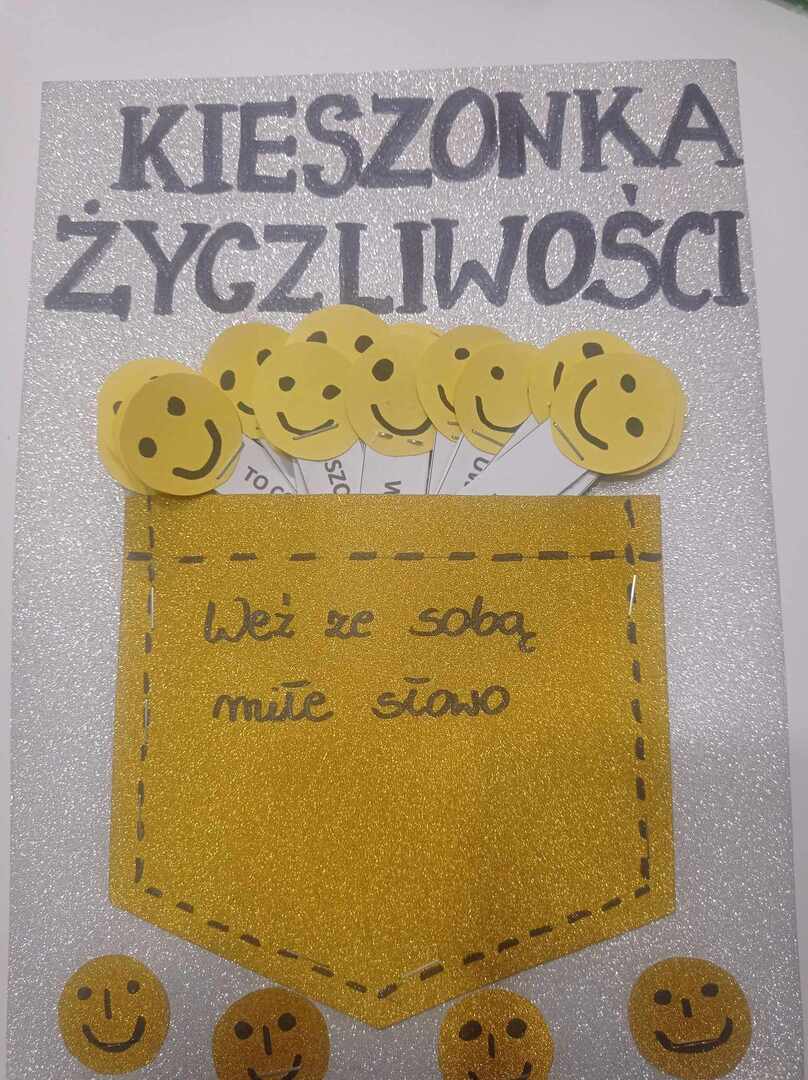 KIESZONKA
ŻYCZLIWOŚCI
Weź ze sobą
miłe słowo